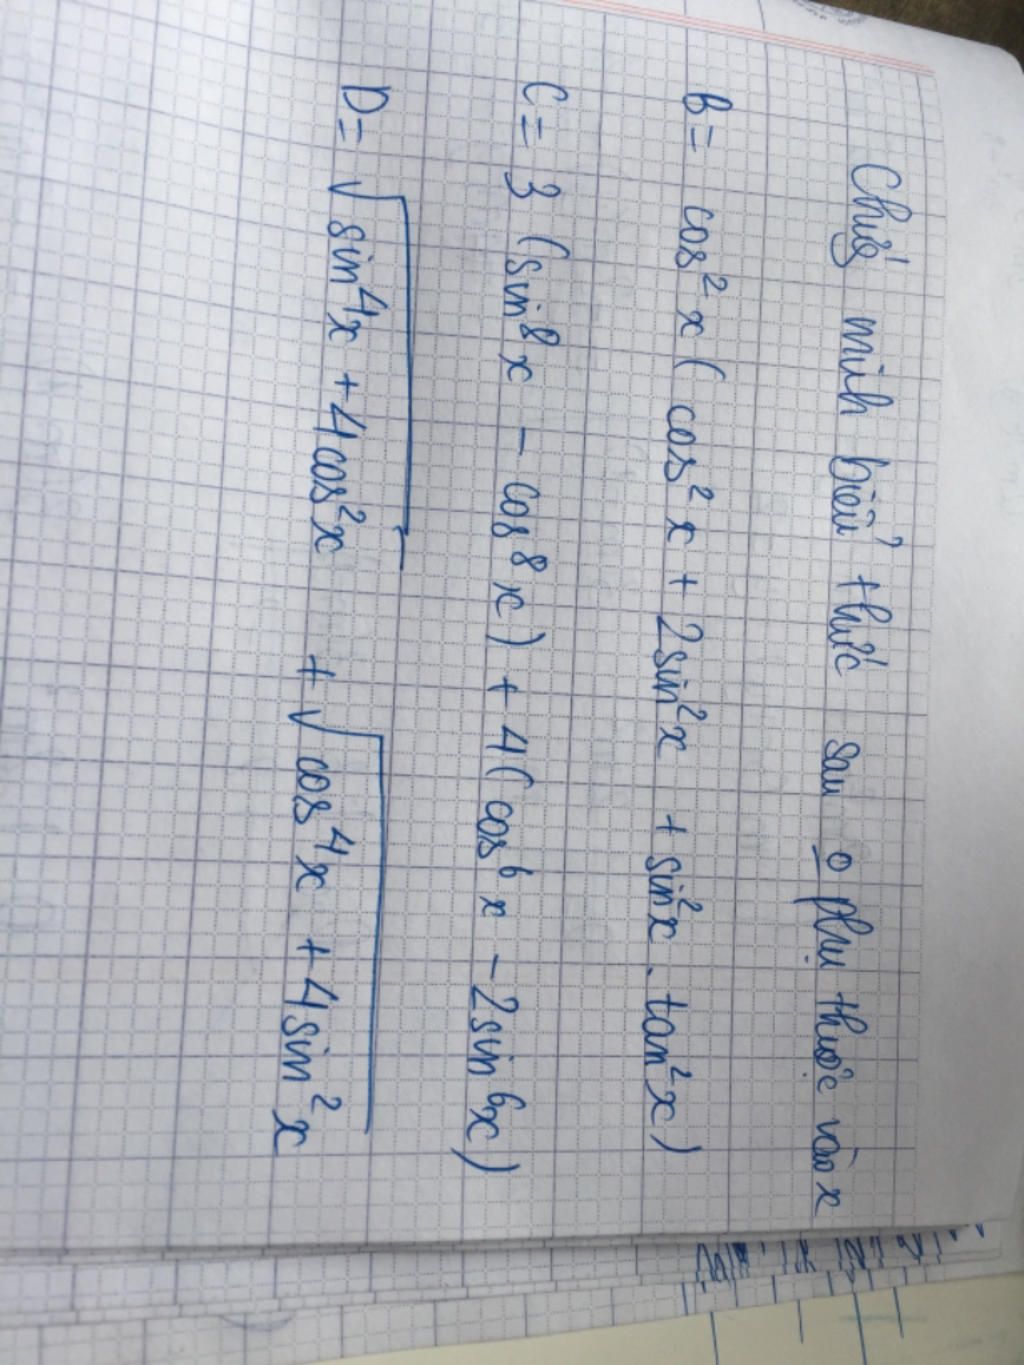 Chứng minh biểu thức sau o phụ thuộc vào x
B = cos²x (cos²x + 2sin²x + sin²x . tan²x)
C = 3 (sin⁸x - cos⁸x) + 4(cos⁶x - 2sin⁶x)
D = √(sin⁴x + 4cos²x) + √(cos⁴x + 4sin²x)